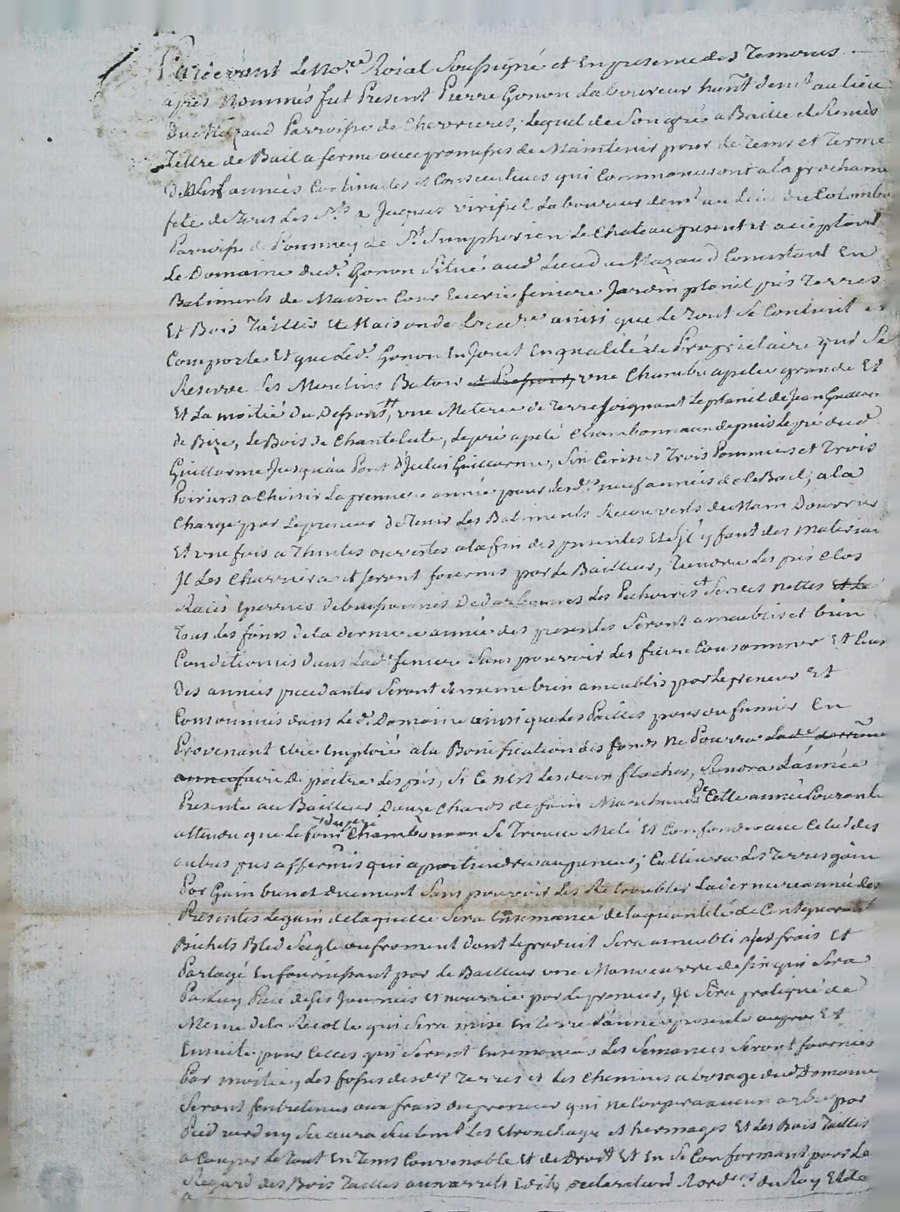 Pardevant Le No.re Roial Soussigné et En presence des Temoins
apres Nommés fut Present Pierre Gonon Laboureur hant demt au lieu
Du Mazaud Parroisse de Chevrieres, Lequel de Son gré a Baillé et Remis
Tittre de Bail a ferme avec promesses de Maintenir pour le Tems et Terme
De Neuf années Continuelles et Consecutives qui Commanceront a la prochaine
fete de Tous Les Sts a Jacques virissel Laboureur demt au Lieu du Colombier
Parroisse de Pommey de St Simphorien Le Chateau present et acceptant
Le Domaine dud. Gonon Situé aud. Lieu du Mazaud Consistant En
Batiments de Maison Cour Ecurie feniere Jardin planil prés Terres
Et Bois Taillis Et Maison de ainsi que le Tout Se Contient et
Comporte Et que Led. Gonon En Jouit En qualité de Proprietaire qui Se
Reserve Les Moulins Batoir et Pressoir, une Chambre apelée grande Et
Et La moitié du, une Meterée de Terre Joignant Le planil de Jean
de Bize, Le Bois de Chantelute, Le pré apelé Chambonnau depuis Le pré dud.
Guillerme Jusqu'au Pont Julei Guillerme, Six Cerisiers Trois Pommiers et Trois
Poiriers a Choisir La premiere année pour Lesd. neuf années de ce Bail; a la
Charge par Le preneur de Tenir Les Batiments Recouverts de Main D'ouvrier
Et une fois a Thuiles ouvertes a la fin des presentes Et S'il y faut des Materiau
Il Les Charriera et Seront fournis par Le Bailleur, Tiendra Les prés Clos
Raiés Epierrés debuissonnés Les Pecheries et Serves nettes et Le
Tous Les foins de la derniere année des presentes Seront ameublis et bien
Conditionnés dans Lad. feniere Sans pouvoir Les faire Consommer Et Ceux
Des années precedantes Seront de meme bien ameublis par Le preneur Et
Consommés dans Led. Domaine ainsi que Les Pailles pour du fumier En
Provenant Etre Emploié a la Bonification des fonds Ne Pourra Lad. derniere
année faire de paitre Les prés, Si Ce n'est Les deux flaches, Rendra L'année
Presente au Bailleur Douze Chards de foin Marchands de Cette année Courante
attendu que Le foin du pré Chambonnau Se Trouve Melé Et Confondu avec Celui des
autres prés affermés qui apartiendra au preneur; Cultivera Les Terres gain
Par Gain bien et duement Sans pouvoir Les Retroubler La derniere année des
Presentes Le gain de laquelle Sera Ensemancé de la quantité de Cent quarante
Bichets Bled Seigle ou froment dont Le produit Sera ameubli a ses frais Et
Partagé En fournissant par Le Bailleur une Manoeuvre de qui Sera
Par Luy Paié de Ses Journées et nourrie par Le preneur, Il Sera pratiqué de
Meme de la Recolte qui Sera mise En Terre L'année presente au gros Et
Ensuite pour Celles qui Seront Ensemancées Les Semances Seront fournies
Par moitié, Les fossés desd. Terres et Les Chemins a L'usage dud. Domaine
Seront Entretenus aux frais du preneur qui Ne Coupera aucun arbre par
Pied verd ny Sec aura Seulemt Les Etronchage et hermages Et Les Bois Taillis
a Couper Le Tout En Tems Convenable Et de Droit Et En Se Conformant pour Le
Regard des Bois Taillis aux arrets Edits Declarations du Roy Et de